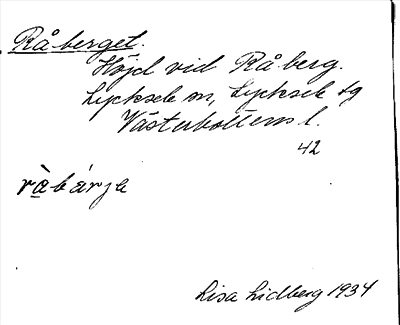 Råberget.
Höjd vid Råberg.
Lycksele sn, Lycksele tg
Västerbottens l.
42
ràbárja
Lisa Lidberg 1934